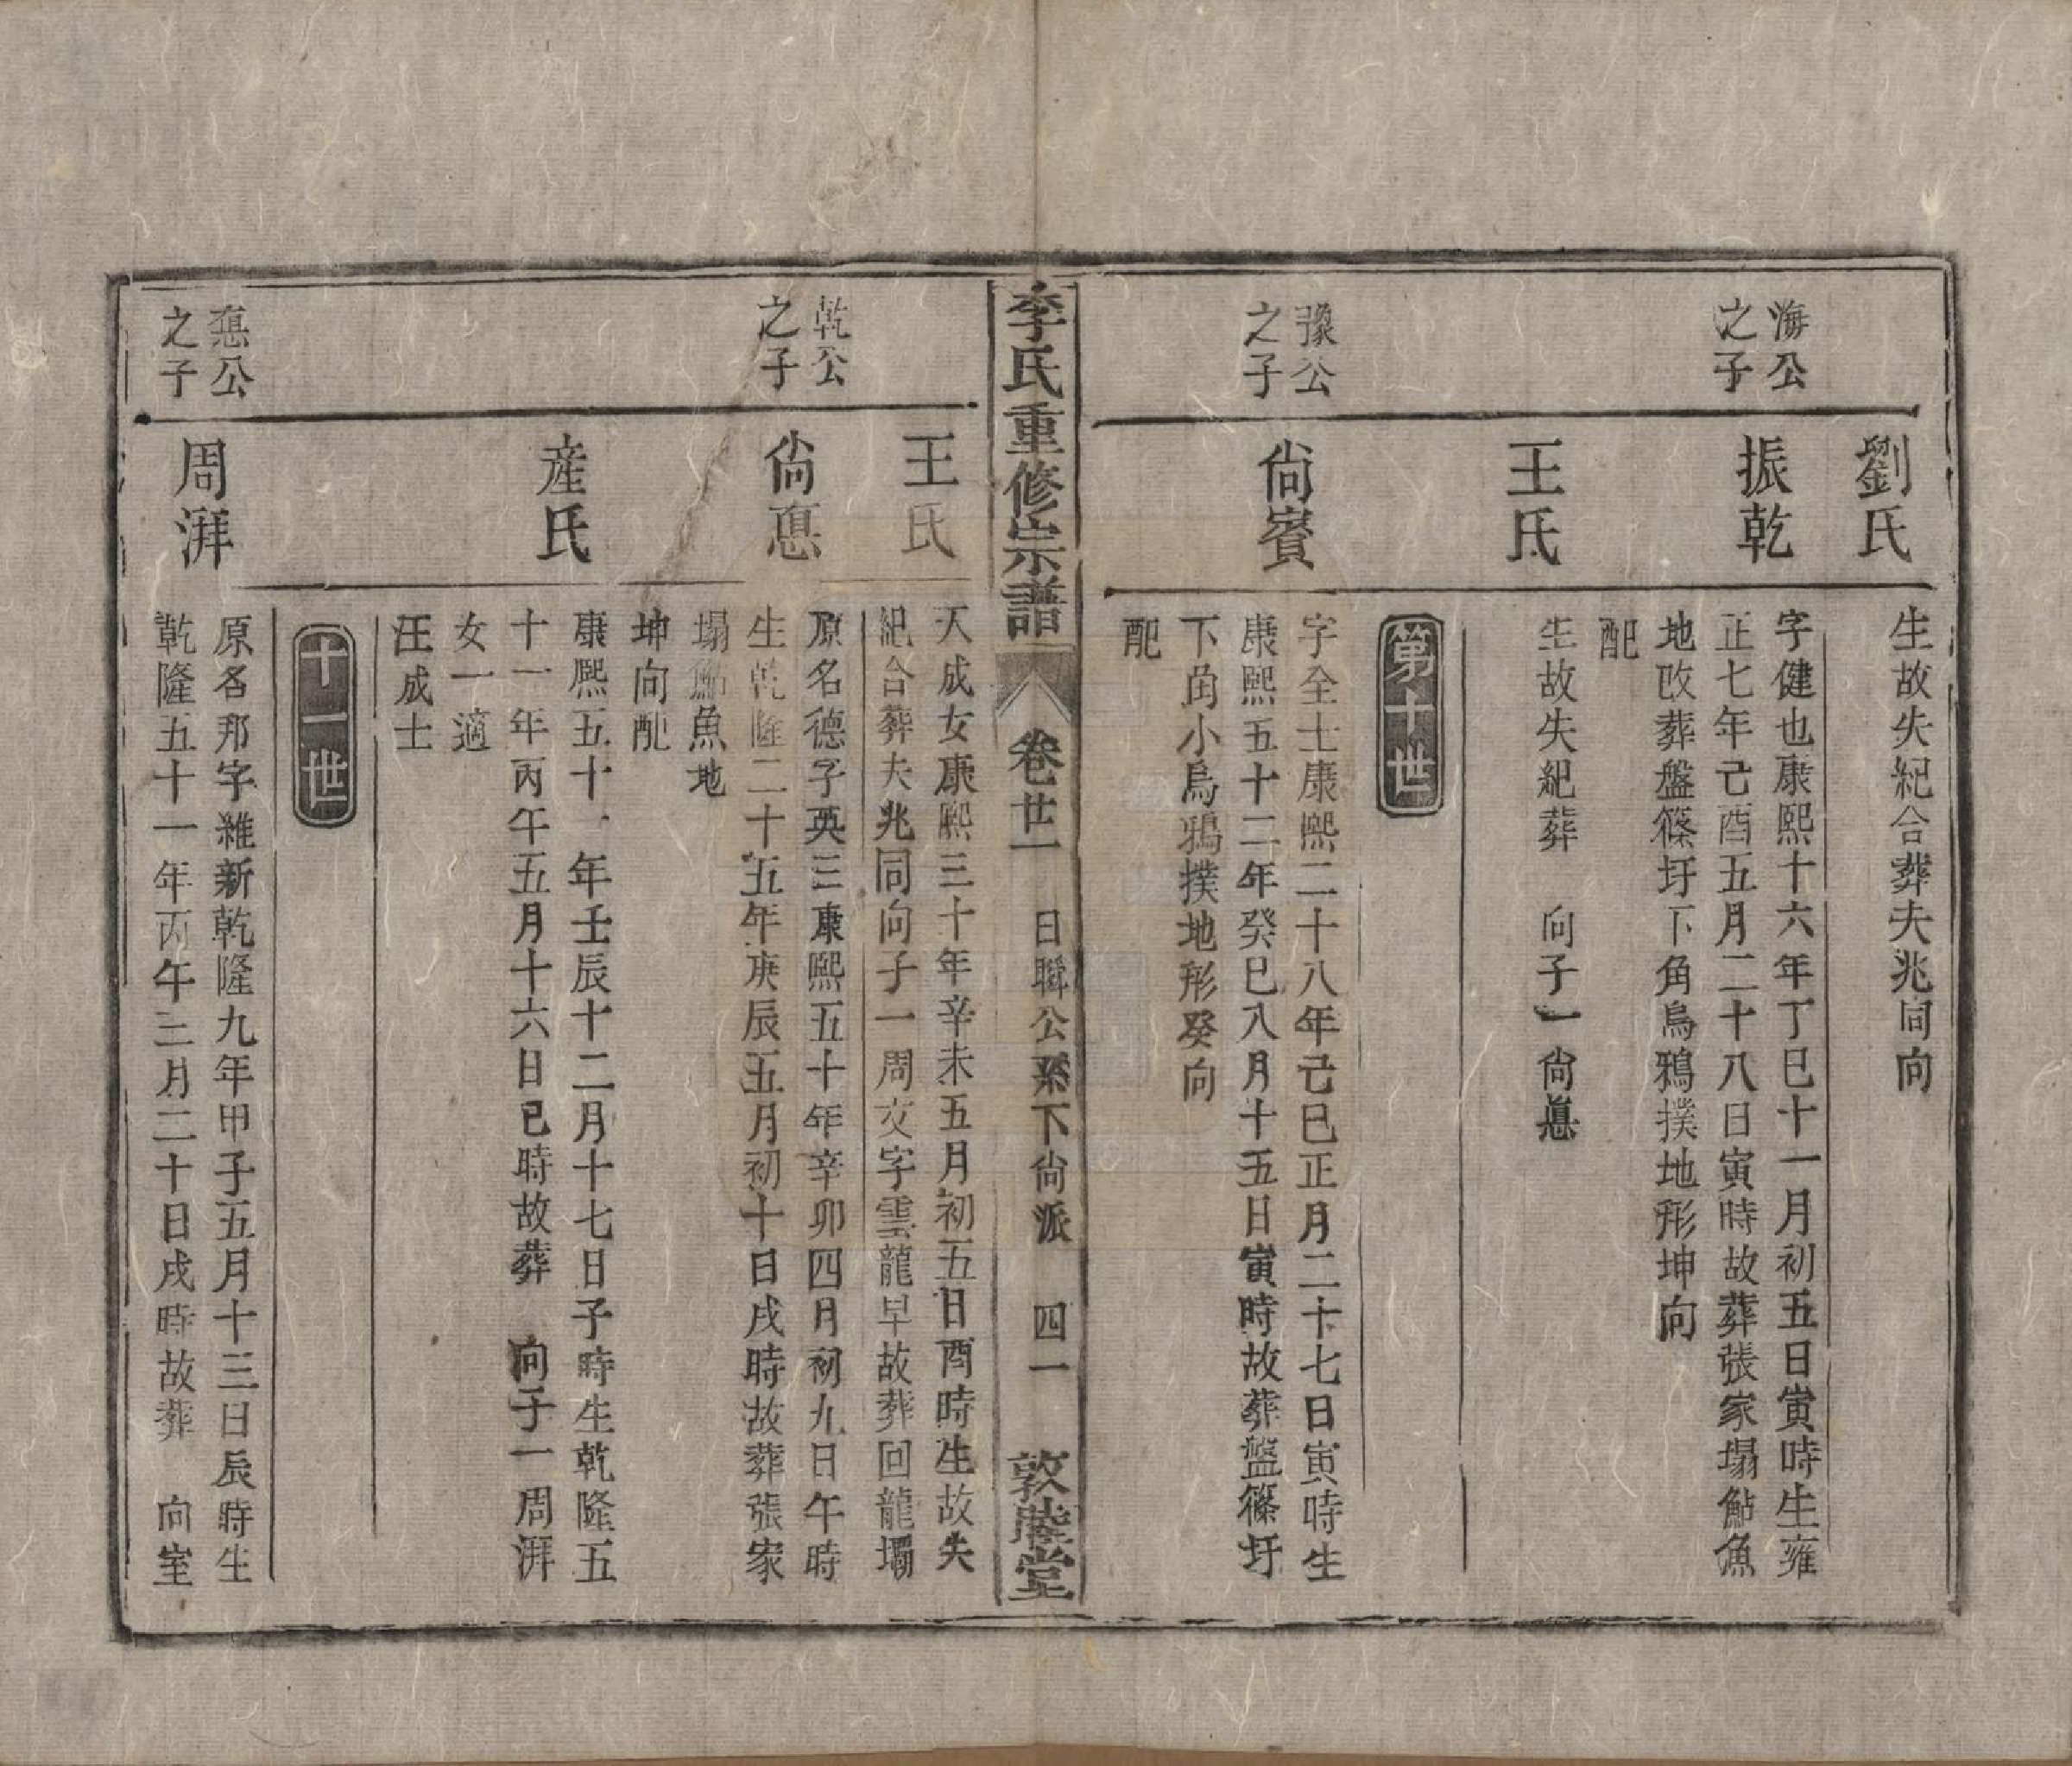 劉氏
生故失紀合葬夫兆同向
海公
之子
振乾
字健也康熙十六年丁巳十一月初五日寅時生雍
正七年己酉五月二十八日寅時故葬張家塌鮎魚
地改葬盤篠圩下角烏鴉撲地形坤向
配
王氏
生故失紀葬　向子一尙惪
第十世
豫公
之子
尙賓
字全士康熙二十八年己巳正月二十七日寅時生
康熙五十二年癸巳八月十五日寅時故葬盤篠圩
下角小烏鴉撲地形癸向
配
李氏重修宗譜
卷廿一　日聯公系下尙派　四一
敦睦堂
王氏
天成女康熙三十年辛未五月初五日酉時生故失
紀合葬夫兆同向子一周交字雲龍早故葬回龍壩
乾公
之子
尙惪
原名德子英三康熙五十年辛卯四月初九日午時
生乾隆二十五年庚辰五月初十日戌時故葬張家
塌鮎魚地
坤向配
産氏
康熙五十一年壬辰十二月十七日子時生乾隆五
十一年丙午五月十六日巳時故葬　向子一周湃
女一適
汪成士
十一世
惪公
之子
周湃
原名邦字維新乾隆九年甲子五月十三日辰時生
乾隆五十一年丙午三月二十日戌時故葬　向室